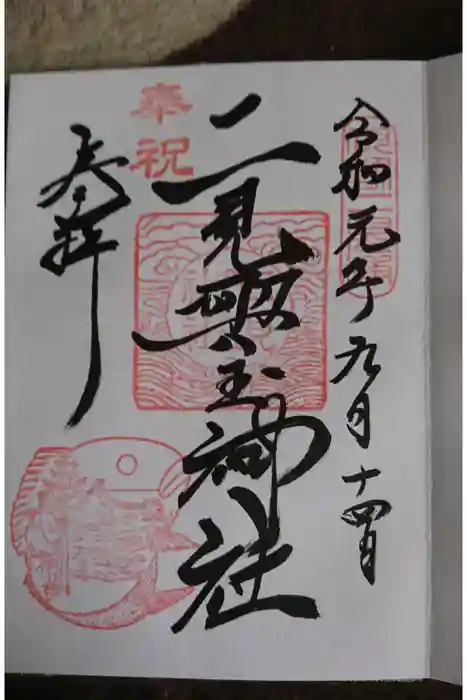 令和元年九月十四日
二見興玉神社
奉祝
奉拝